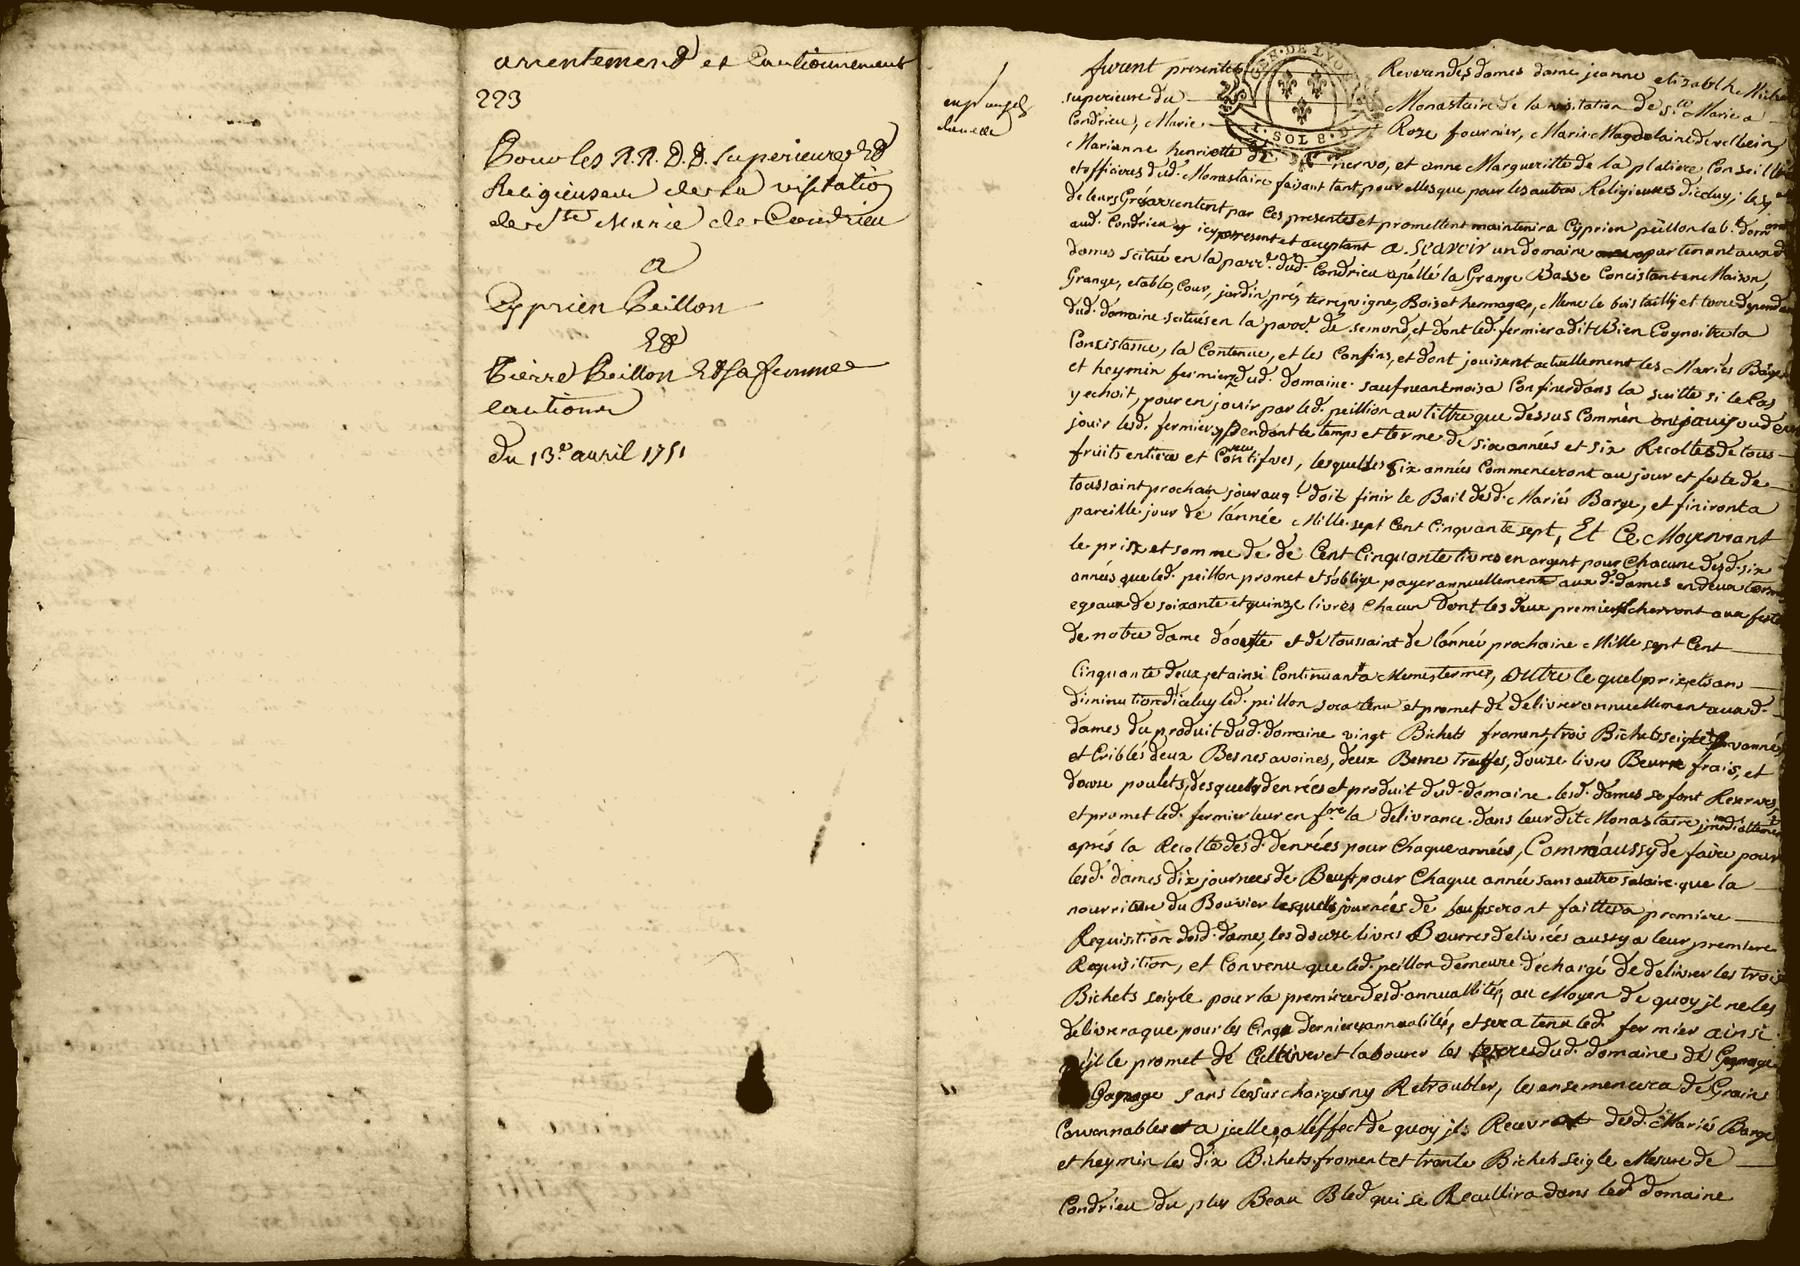 arrentement et Cautionnement
223
Pour les R.R. D.D. superieure Et
Religieuses de la visitation
de Ste Marie de Condrieu
a
Cyprien Peillon
Et
Pierre Peillon Et sa femme
cautions
du 13e avril 1751
furent presentes Reverendes dames dame jeanne elizabeth
superieure du Monastaire de la visitation de Ste Marie a
Condrieu, Marie Roze fournier, Marie Magdelaine
Marianne henriette de nervo, et anne Margueritte de la platiere Conseilleres
et officieres dud. Monastaire faisant tant pour elles que pour les autres Religieuses d'iceluy; lesq
de leurs Grés arrentent par Ces presentes et promettent maintenir a Cyprien peillon lab.
aud. Condrieu icy present et acceptant a scavoir un domaine apartenant auxd
dames scitué en la parr. dud. Condrieu apéllé la Grange Basse Concistant en Maison,
Grange, etable, Cour, jardin, prés, terres, vigne, Bois et hermages, Meme le bois tailly et terre dependant
dud. domaine scitués en la parr. de semond, et dont led. fermier a dit Bien Cognoitre la
Consistance, la Contenue, et les Confins, et dont jouissent actuellement les Mariés Barge
et heymin fermiers dud. domaine sauf neantmois a Confiner dans la suitte si le Cas
y echoit, pour en jouir par led. peillion au tiltre que dessus Comme en ont jouy ou deu
jouir lesd. fermiers pendant le temps et terme de six années et six Recoltes de tous
fruits entiers et Consecutifves, lesquelles six années Commenceront au jour et feste de
toussaint prochain jour auq.l doit finir le Bail desd. Mariés Barge, et finiront a
pareille jour de l'année Mille sept Cent Cinquante sept, Et Ce Moyennant
le prix et somme de de Cent Cinquante livres en argent pour Chacune desd. six
années que led. peillon promet et s'oblige payer annuellement auxd. dames en deux termes
egeaux de soixante et quinze livres Chacun dont les deux premiers echerront aux festes
de notre dame d'aoust et de toussaint de l'année prochaine Mille sept Cent
Cinquante deux, et ainsi Continuant a Memes termes, outre le quel prix, et sans
diminution d'iceluy led. peillon sera tenu et promet de delivrer annuellement auxd.
dames du produit dud. domaine vingt Bichets froment, trois Bichets seigle vannés
et Criblés deux Besnes avoines, deux Besne truffes, douze livres Beurre frais, et
douze poulets, desquels denrées et produit dud. domaine lesd. dames se font Reserves
et promet led. fermier leur en f.re la delivrance dans leurdit Monastaire immediattement
aprés la Recolte desd. denrées pour Chaque années, Comm'aussy de faire pour
lesd. dames dix journees de Beufs pour Chaque année sans autre salaire que la
nourriture du Bouvier lesquels journées de beufs seront faitte a premiere
Requisition desd. dames, les douze livres Beurres delivrées aussy a leur premiere
Requisition, et Convenu que led. peillon demeure dechargé de delivrer les trois
Bichets seigle pour la premiere desd. annuallités, au Moyen de quoy il ne les
delivrera que pour les Cinqs dernieres annualités, et sera tenu led. fermier ainsi
qu'il le promet de Cultiver et labourer les terres dud. domaine de Gagnage
Gagnage sans les surcharges ny Retroubler, les ensemencera de Grains
Convennables a jcelles a l'effect de quoy ils Recevront desd. Mariés Barge
et heymin les dix Bichets froment et trente Bichets seigle Mesure de
Condrieu du plus Beau Bled qui se Recullira dans led. domaine